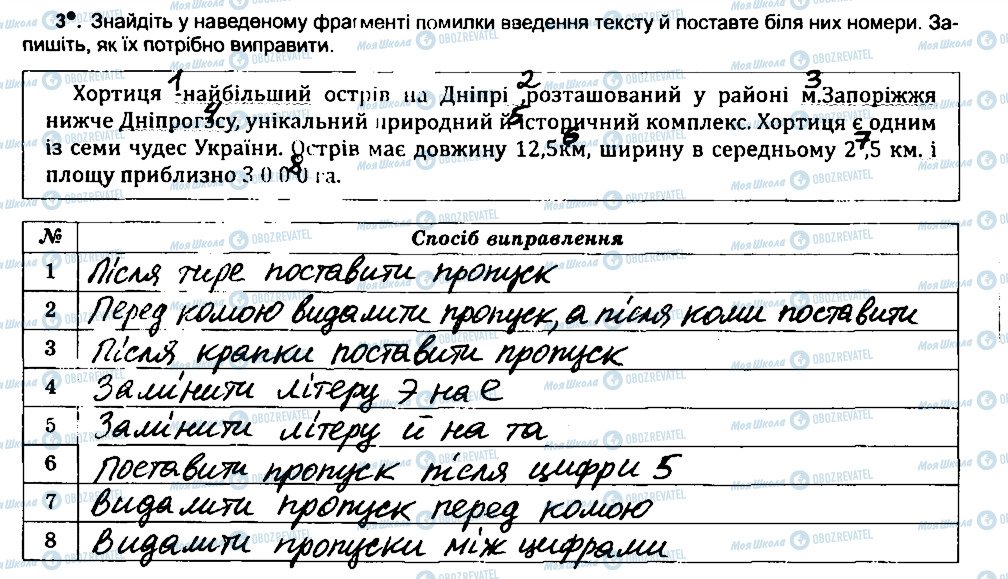 3°. Знайдіть у наведеному фрагменті помилки введення тексту й поставте біля них номери. За-
пишіть, як їх потрібно виправити.
1 2 3
Хортиця -найбільший острів на Дніпрі ,розташований у районі м.Запоріжжя
4 5 6 7
нижче Дніпрогэсу, унікальний природний й історичний комплекс. Хортиця є одним
із семи чудес України. Острів має довжину 12,5км, ширину в середньому 2 ,5 км. і
8
площу приблизно 3 0 0 0 га.
№ Спосіб виправлення
1 Після тире поставити пропуск
2 Перед комою видалити пропуск, а після коми поставити
3 Після крапки поставити пропуск
4 Замінити літеру Э на Е
5 Замінити літеру й на та
6 Поставити пропуск після цифри 5
7 Видалити пропуск перед комою
8 Видалити пропуски між цифрами
МояШкола OBOZREVATEL